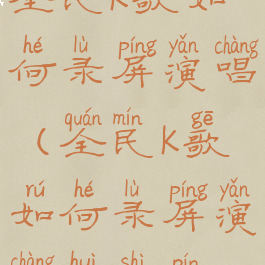 全民K歌如
hé lù píng yǎn chàng
何录屏演唱
quán mín gē
(全民K歌
rú hé lù píng yǎn
如何录屏演
chàng huì shì pín